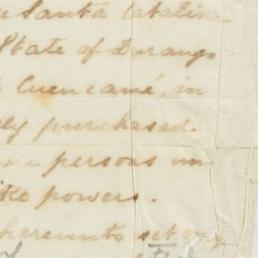 Santa Catalin
State of Durango
Cuencamé, in
purchased
persons un
powers.
hereunto set my